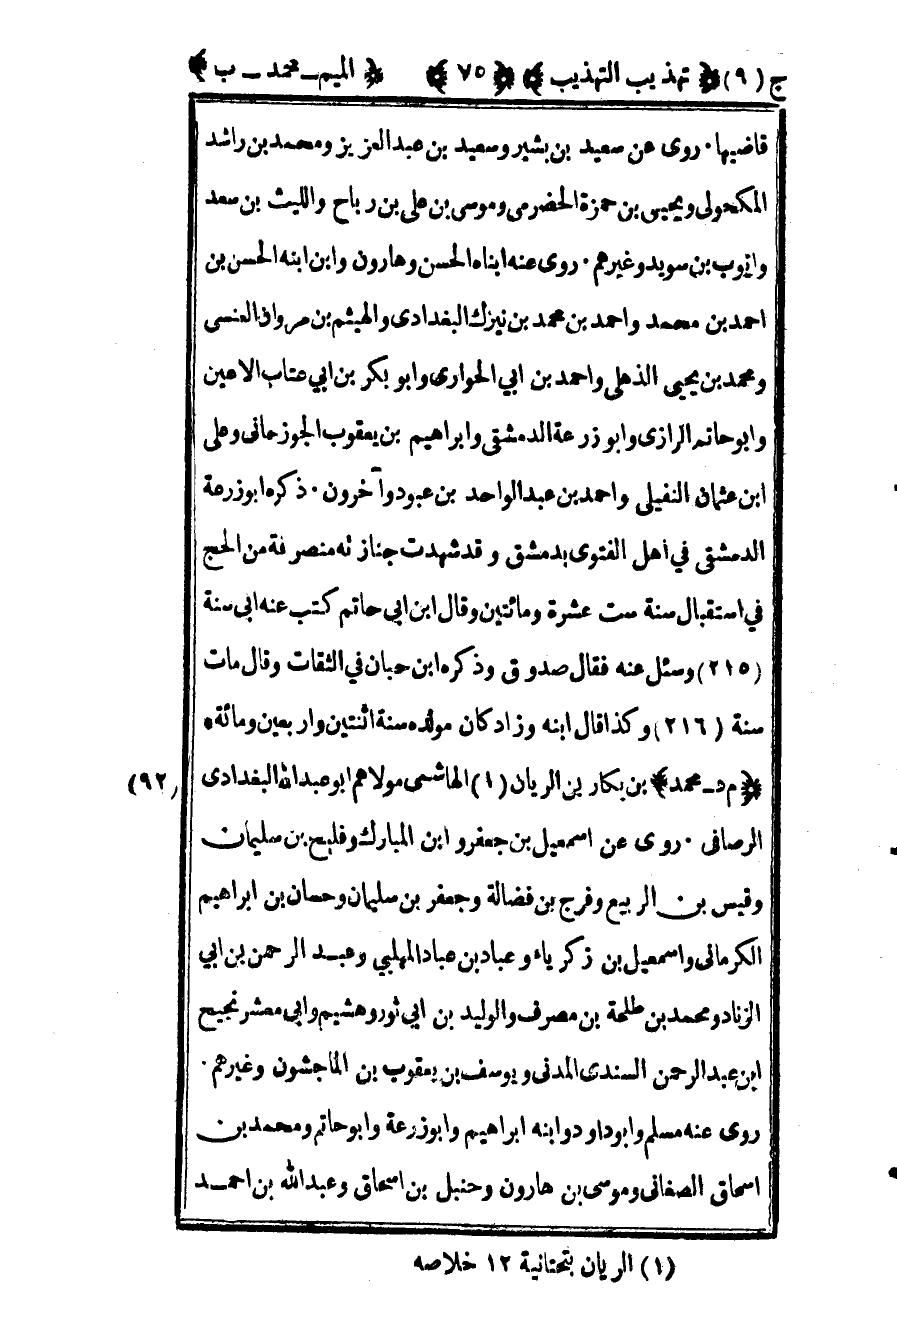 ج (٩) ﴿ تهذيب التهذيب ﴾ ﴿ ٧٥ ﴾ ﴿ الميم ـ محمد ـ ب ﴾
قاضيها ٠ روى عن سعيد بن بشير وسعيد بن عبد العزيز ومحمد بن راشد
المكحولى ويحيى بن حمزة الحضرمى وموسى بن على بن رباح والليث بن سعد
وايوب بن سويد وغيرهم ٠ روى عنه ابناه الحسن وهارون وابن ابنه الحسن بن
احمد بن محمد واحمد بن محمد بن نيزك البغدادى والهيثم بن مروان العنسى
ومحمد بن يحيى الذهلى واحمد بن ابي الحوارى وابو بكر بن ابي عتاب الاعين
وابو حاتم الرازى وابو زرعة الدمشقى وابراهيم بن يعقوب الجوزجانى وعلى
ابن عثمان النفيلى واحمد بن عبد الواحد بن عبود وآخرون ٠ ذكره ابو زرعة
الدمشقى في اهل الفتوى بدمشق وقد شهدت جنازته منصرفة من الحج
في استقبال سنة ست عشرة ومائتين وقال ابن ابي حاتم كتب عنه ابى سنة
(٢١٥) وسئل عنه فقال صدوق وذكره ابن حبان في الثقات وقال مات
سنة (٢١٦) وكذا قال ابنه وزاد كان مولده سنة اثنتين واربعين ومائة ٠
﴿ م د ـ محمد ﴾ بن بكار بن الريان (١) الهاشمى مولاهم ابو عبد الله البغدادى (٩٢)
الرصافى ٠ روى عن اسمعيل بن جعفر وابن المبارك وفليح بن سليمان
وقيس بن الربيع وفرج بن فضالة وجعفر بن سليمان وحسان بن ابراهيم
الكرمانى واسمعيل بن زكرياء وعباد بن عباد المهلبي وعبد الرحمن بن ابي
الزناد ومحمد بن طلحة بن مصرف والوليد بن ابي ثور وهشيم وابي معشر نجيح
ابن عبد الرحمن السندى المدنى ويوسف بن يعقوب بن الماجشون وغيرهم ٠
روى عنه مسلم وابو داود وابنه ابراهيم وابو زرعة وابو حاتم ومحمد بن
اسحاق الصغانى وموسى بن هارون وحنبل بن اسحاق وعبد الله بن احمد
(١) الريان بتحتانية ١٢ خلاصه